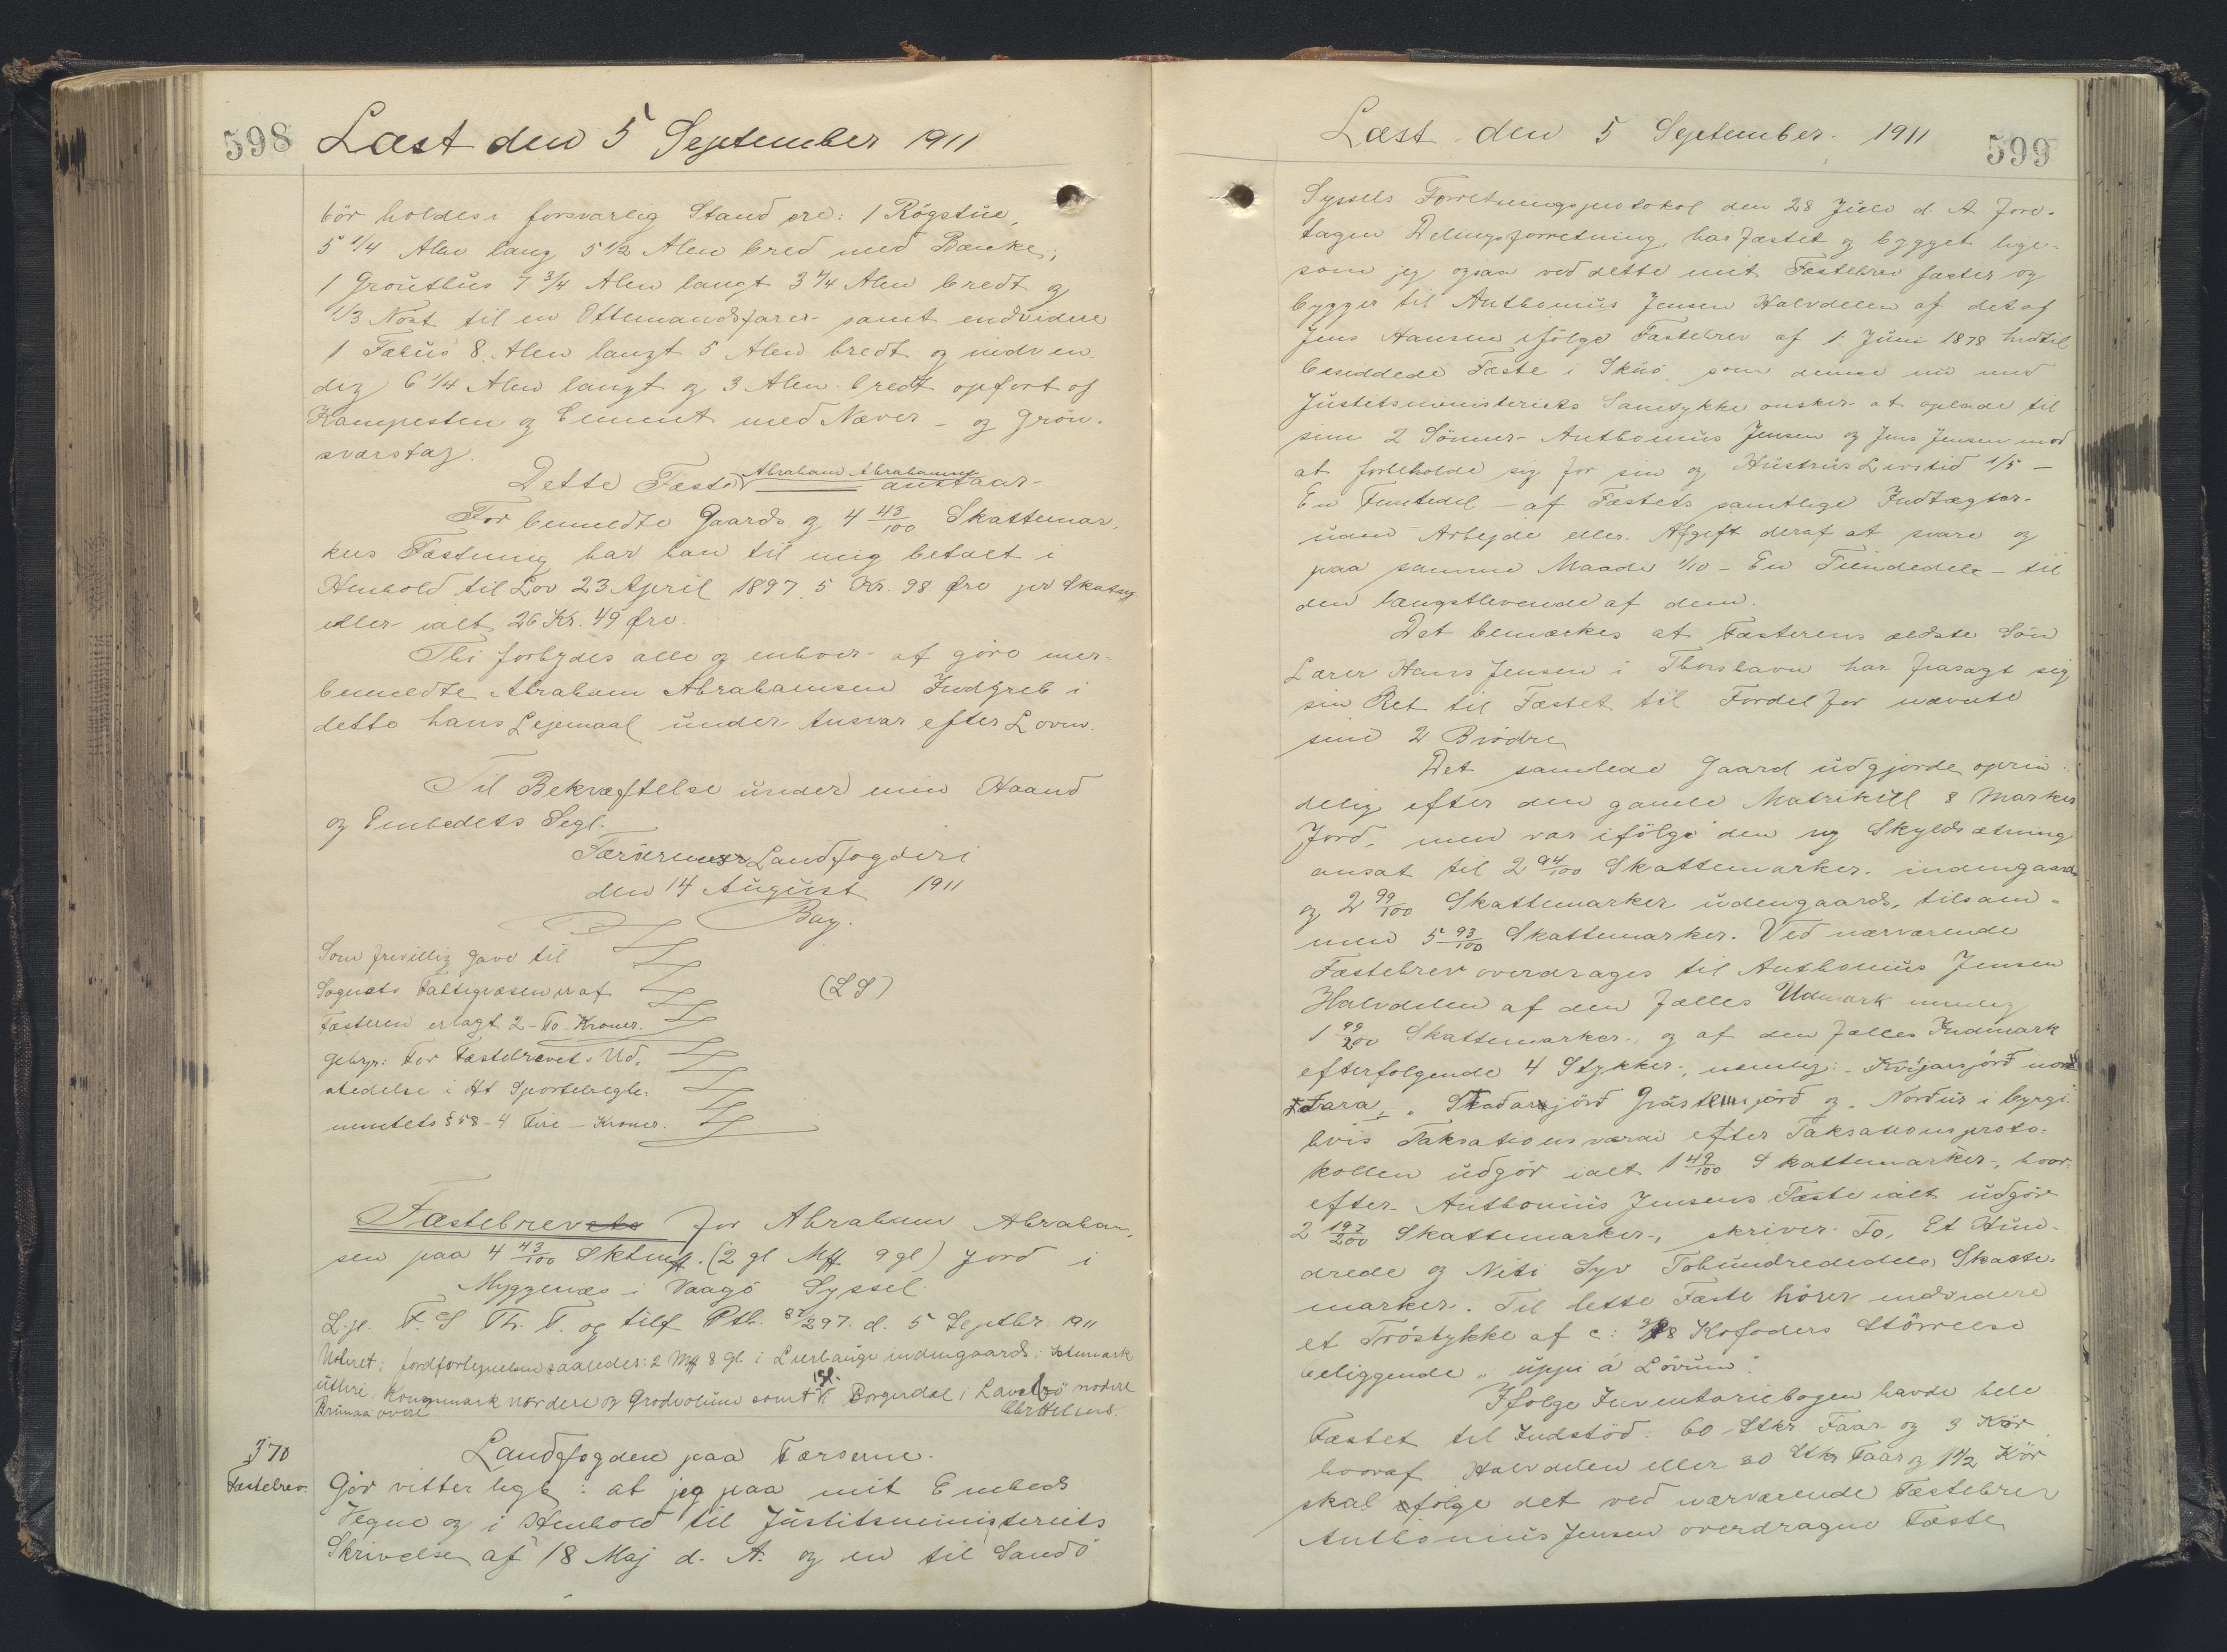 598
Læst den 5 September 1911
bör holdes i forsvarlig Stand ere: 1 Rögstue,
5 1/4 Alen lang 5 1/2 Alen bred med Bænke;
1 Grouthus 7 3/4 Alen langt 3 3/4 Alen bredt og
1/3 Nöst til en Ottemandsfarer samt endvidere
1 Fæhus 8 Alen langt 5 Alen bredt og indven-
dig 6 1/4 Alen langt og 3 Alen bredt opfört af
Kampesten og Cement med Næver- og Grön-
sværstag.
Abraham Abrahamsen
Dette Fæste anstaar
For bemeldte Gaards og 4 43/100 Skattemar-
kers Fæstning har han til mig betalt i
Henhold til Lov 23 April 1897 5 Kr. 98 Øre pr Skatmg
eller ialt 26 Kr. 49 Øre.
Thi forbydes alle og enhver at göre mer-
bemeldte Abraham Abrahamsen Indgreb i
dette hans Lejemaal under Ansvar efter Loven.
Til Bekræftelse under min Haand
og Embedets Segl.
Færöernes Landfogderi
den 14 August 1911
Bay.
Som frivillig Gave til
Sognets Fattigvæsen er af (LS)
Fæsteren erlagt 2 - To - Kroner.
Gebyr: For Fæstebrevets Ud-
stedelse i Ht Sportelregle-
mentets § 58 - 4 Fire - Kroner.
Fæstebrevets for Abraham Abraham-
sen paa 4 43/100 Sktmk. (2 gl Mk 9 gl) Jord i
Myggenæs i Vaagö Syssel
L. gl. F. S Th. T. og tilf Ptb. 297. d. 5 Septbr. 1911
Noteret; Jordfortegnelsen saaledes: 2 Mk 8 Gl. i indengaards:
370
Fæstebrev.
Landfogden paa Færöerne.
Gör vitterligt: at jeg paa mit Embeds
Vegne og i Henhold til Justitsministeriets
Skrivelse af 18 Maj d. A. og en til Sandö
Læst den 5 September 1911
599
Syssels Forretningsprotokol den 28 Juli d. A fore-
tagen Delingsforretning, har fæstet og bygget lige-
som jeg ogsaa ved dette mit Fæstebrev fæster og
bygger til Anthonius Jensen Halvdelen af det af
Jens Hansen ifölge Fæstebrev af 1. Juni 1878 hidtil
besiddede Fæste i Skuö, som denne nu med
Justitsministeriets Samtykke önsker at oplade til
sine 2 Sönner Anthonius Jensen og Jens Jensen mod
at forbeholde sig for sin og Hustrus Livstid 1/5 -
En Femtedel - af Fæstets samtlige Indtægter
uden Arbejde eller Afgift deraf at svare og
paa samme Maade 1/10 - En Tiendedel - til
den længstlevende af dem.
Det bemærkes at Fæsterens ældste Sön
Lærer Hans Jensen i Thorshavn har frasagt sig
sin Ret til Fæstet til Fordel for nævnte
sine 2 Brödre
Det samlede Gaard udgjorde oprin-
delig efter den gamle Matrikul 8 Marker
Jord, men var ifölge den ny Skyldsætning
ansat til 2 94/100 Skattemarker indengaards
og 2 99/100 Skattemarker udengaards, tilsam-
men 5 93/100 Skattemarker. Ved nærværende
Fæstebrev overdrages til Anthonius Jensen
Halvdelen af den fælles Udmark nemlig
1 99/200 Skattemarker og af den fælles Indmark
efterfölgende 4 Stykker, nemlig: Kvijarsjörð
jörð og "Norður i byrgi
hvis Taksationsværdi efter Taksationsproto-
kollen udgör ialt 1 49/100 Skattemarker, hvor-
efter Anthonius Jensens Fæste ialt udgör
2 197/200 Skattemarker, skriver To, Et Hun-
drede og Niti Syv Tohundrededele Skatte-
marker. Til dette Fæste hörer endvidere
et Tröstykke af c: 3/8 Kofoders Störrelse
beliggende "uppi á Lövum".
Ifölge Inventariebogen havde hele
Fæstet til Indstöd: 60 Stkr Faar og 3 Kör
hvoraf Halvdelen eller 30 Stkr Faar og 1 1/2 Kör
skal fölge det ved nærværende Fæstebrev
Anthonius Jensen overdragne Fæste